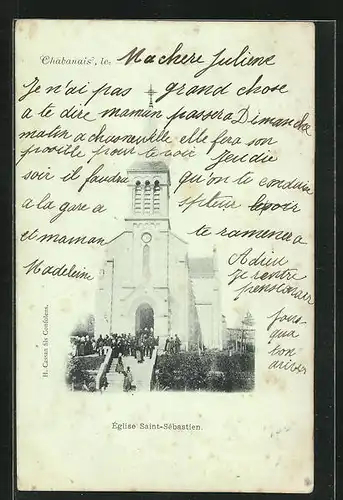 Chabanais, le
Ma chere Juliene
Je n'ai pas grand chose
a te dire maman passera Dimanche
matin a chasneuille elle fera son
posible pour te voir Jeudie
soir il faudra qu'on te conduise
a la gare a 
et maman te ramenera
Madeleine
Adieu
je rentre
pensionner
jous-
qua
ton
arivee
H. Cassan fils Confolens.
Église Saint-Sébastien.